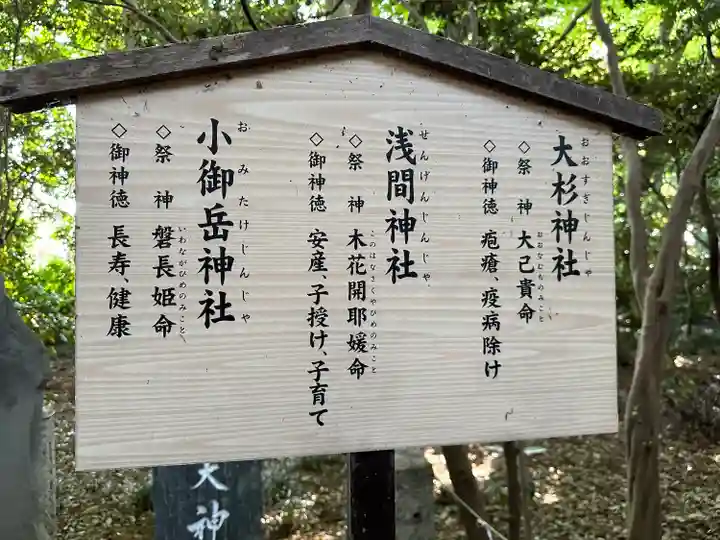 大杉神社
おおすぎじんじゃ
◇祭神 大己貴命
おおなむちのみこと
◇御神徳 疱瘡、疫病除け
浅間神社
せんげんじんじゃ
◇祭神 木花開耶媛命
このはなさくやひめのみこと
◇御神徳 安産、子授け、子育て
小御岳神社
おみたけじんじゃ
◇祭神 磐長姫命
いわながひめのみこと
◇御神徳 長寿、健康
大神